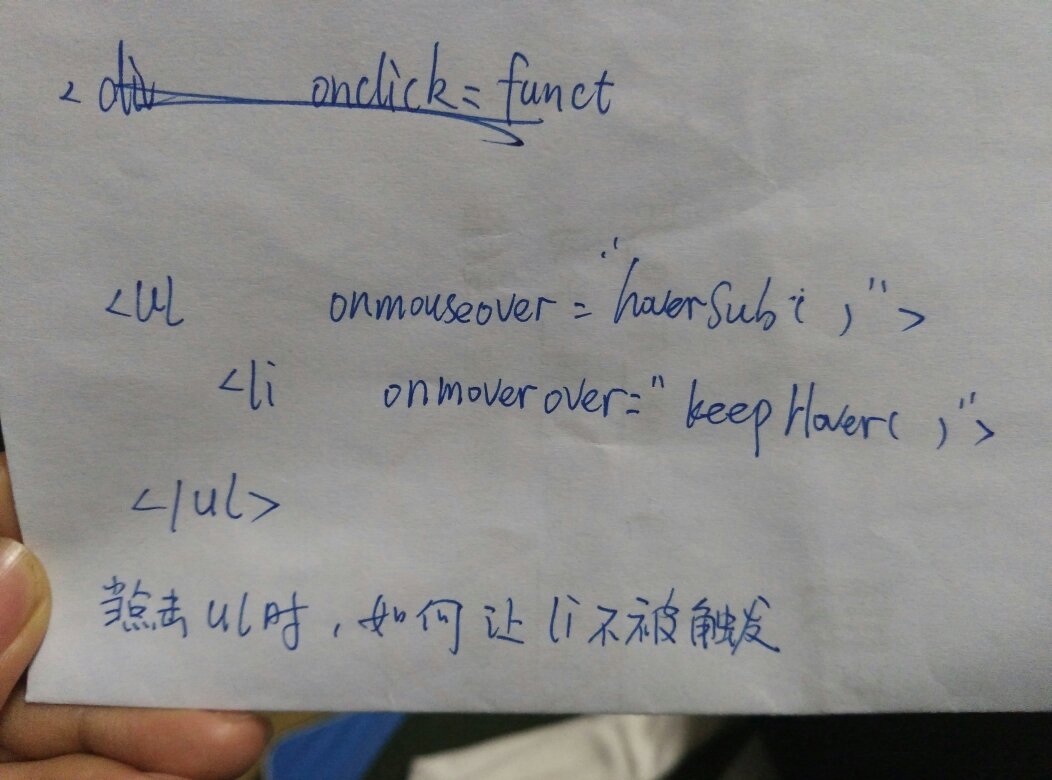 2 div onclick= funct
<ul onmouseover = "hoverSub( ;">
<li onmoverover="keepHover( ;">
</ul>
当点击ul时,如何让li不被触发